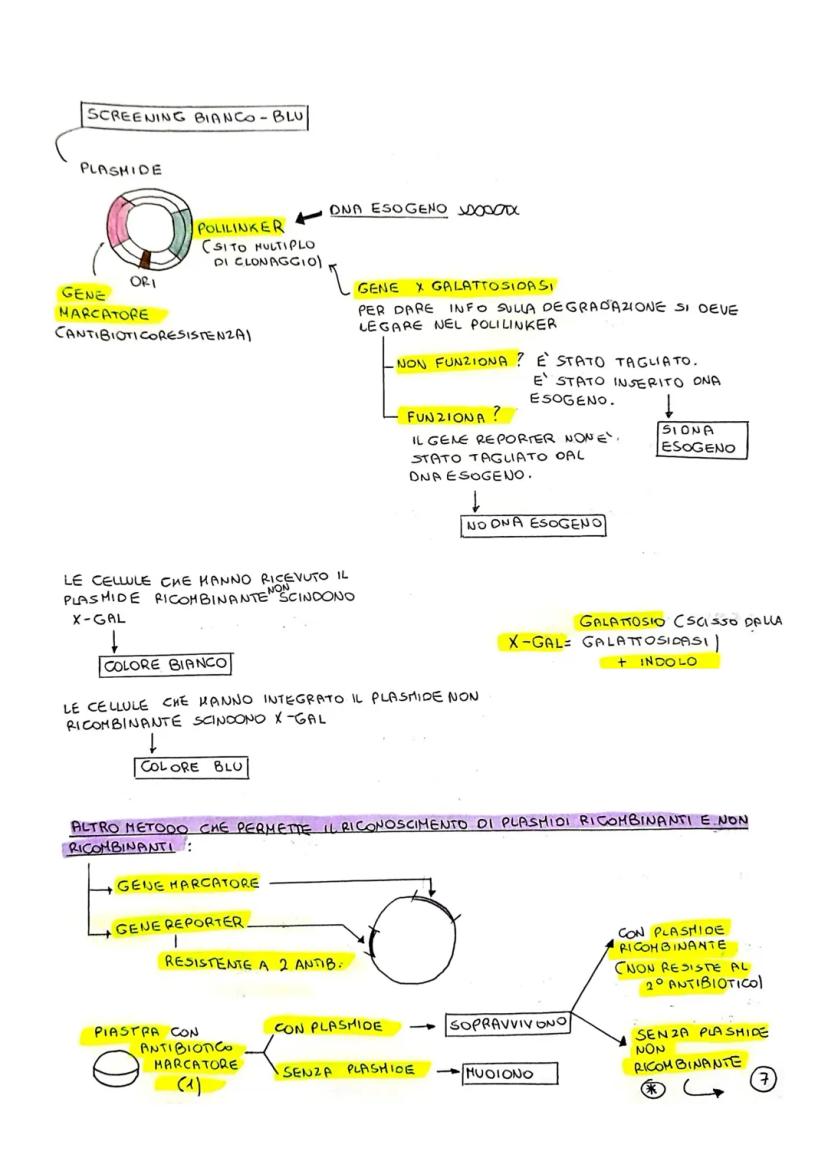 SCREENING BIANCO-BLU
PLASMIDE
DNA ESOGENO
POLILINKER
(SITO MULTIPLO
DI CLONAGGIO)
ORI
GENE
MARCATORE
(ANTIBIOTICORESISTENZA)
GENE X GALATTOSIDASI
PER DARE INFO SULLA DEGRADAZIONE SI DEVE
LEGARE NEL POLILINKER
NON FUNZIONA? E` STATO TAGLIATO.
E` STATO INSERITO DNA
ESOGENO.
SI DNA
ESOGENO
FUNZIONA?
IL GENE REPORTER NON E`
STATO TAGLIATO DAL
DNA ESOGENO.
NO DNA ESOGENO
LE CELLULE CHE HANNO RICEVUTO IL
PLASMIDE RICOMBINANTE NON SCINDONO
X-GAL
COLORE BIANCO
GALATTOSIO (SCISSO DALLA
X-GAL= GALATTOSIDASI)
+ INDOLO
LE CELLULE CHE HANNO INTEGRATO IL PLASMIDE NON
RICOMBINANTE SCINDONO X-GAL
COLORE BLU
ALTRO METODO CHE PERMETTE IL RICONOSCIMENTO DI PLASMIDI RICOMBINANTI E NON
RICOMBINANTI:
GENE MARCATORE
GENE REPORTER
RESISTENTE A 2 ANTIB.
CON PLASMIDE
RICOMBINANTE
(NON RESISTE AL
2° ANTIBIOTICO)
PIASTRA CON
ANTIBIOTICO
MARCATORE
(1)
CON PLASMIDE
SOPRAVVIVONO
SENZA PLASMIDE
MUOIONO
SENZA PLASMIDE
NON
RICOMBINANTE
*
7